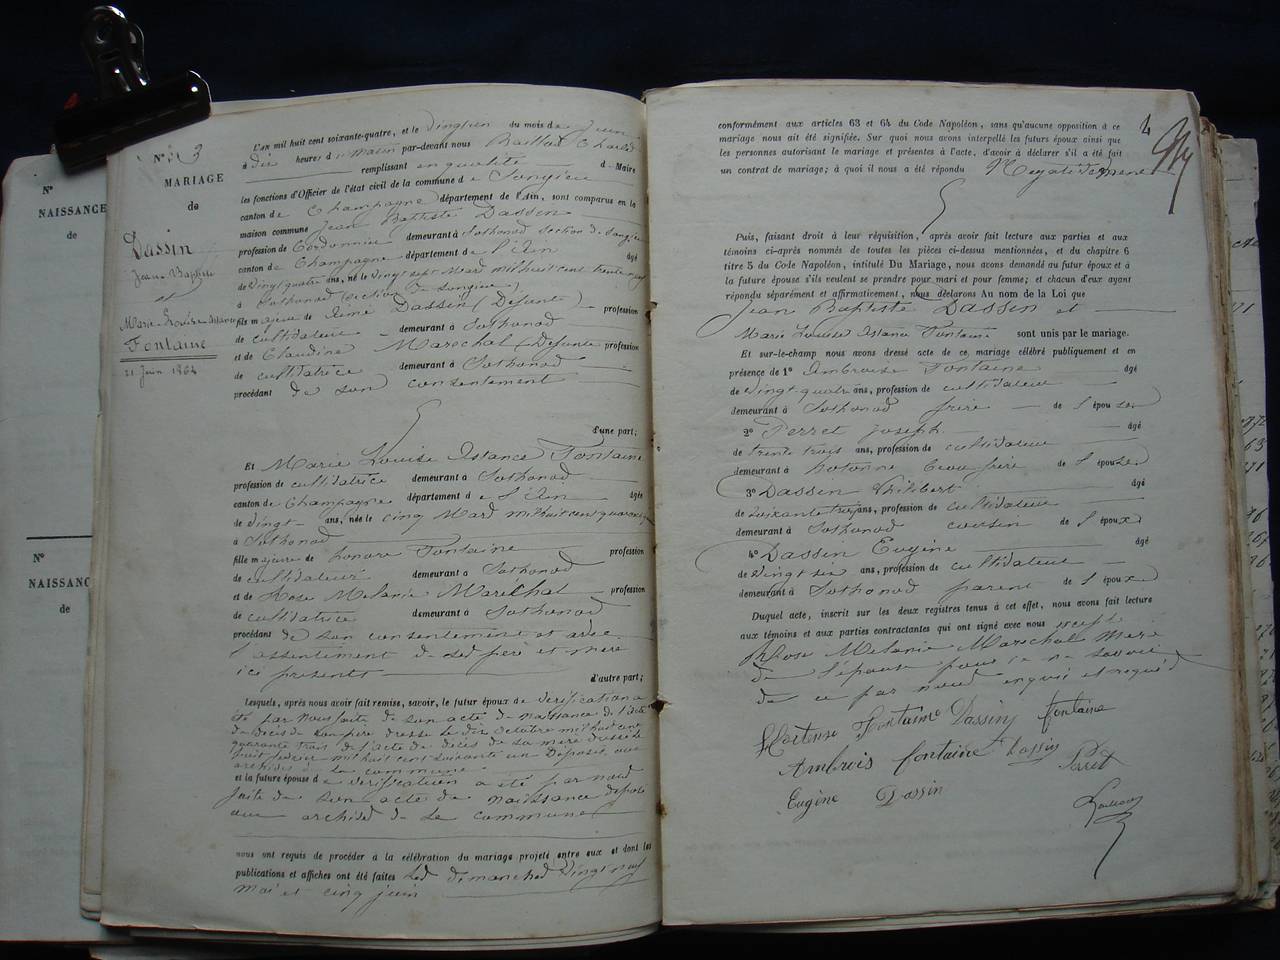 N°
NAISSANCE
de
N°
NAISSANCE
de
N° 3
MARIAGE
de
Dassin
Jean Baptiste
et
Marie Louise
Fontaine
21 Juin 1864
L'an mil huit cent soixante-quatre, et le vingt un du mois de Juin
à dix heures du matin par-devant nous Charles
remplissant en qualité de Maire
les fonctions d'Officier de l'état civil de la commune de Songieu
canton de Champagne département de l'Ain, sont comparus en la
maison commune Jean Baptiste Dassin
profession de Cordonnier demeurant à Sothonod section de Songieu
canton de Champagne département de l'Ain âgé
de vingt quatre ans, né le vingt sept Mars mil huit cent trente neuf
à Sothonod (section de Songieu)
fils majeur de Dassin (Défunt) profession
de cultivateur demeurant à Sothonod
et de Claudine Marechal Défunte profession
de cultivatrice demeurant à Sothonod
procédant de son consentement
d'une part;
Et Marie Louise Fontaine
profession de cultivatrice demeurant à Sothonod
canton de Champagne département de l'Ain âgée
de vingt ans, née le cinq Mars mil huit cent quarante
à Sothonod
fille majeure de honoré Fontaine profession
de cultivateur demeurant à Sothonod
et de Rose Melanie Maréchal profession
de cultivatrice demeurant à Sothonod
procédant de son consentement et avec
l'assentiment de ses père et mère
ici présents
d'autre part;
Lesquels, après nous avoir fait remise, savoir, le futur époux de vérification a
été par nous faite de son acte de naissance de l'acte
de décès de son père dressé le dix octobre mil huit cent
quarante trois de l'acte de décès de sa mère dressé le
huit février mil huit cent soixante un Déposés aux
archives de la commune
et la future épouse de vérification a été par nous
faite de son acte de naissance déposé
aux archives de la commune
nous ont requis de procéder à la célébration du mariage projeté entre eux et dont les
publications et affiches ont été faites les dimanches vingt neuf
mai et cinq juin
4
conformément aux articles 63 et 64 du Code Napoléon, sans qu'aucune opposition à ce
mariage nous ait été signifiée. Sur quoi nous avons interpellé les futurs époux ainsi que
les personnes autorisant le mariage et présentes à l'acte, d'avoir à déclarer s'il a été fait
un contrat de mariage; à quoi il nous a été répondu Négativement
Puis, faisant droit à leur réquisition, après avoir fait lecture aux parties et aux
témoins ci-après nommés de toutes les pièces ci-dessus mentionnées, et du chapitre 6
titre 5 du Code Napoléon, intitulé Du Mariage, nous avons demandé au futur époux et à
la future épouse s'ils veulent se prendre pour mari et pour femme; et chacun d'eux ayant
répondu séparément et affirmativement, nous déclarons Au nom de la Loi que
Jean Baptiste Dassin et
Marie Louise Fontaine sont unis par le mariage.
Et sur-le-champ nous avons dressé acte de ce mariage célébré publiquement et en
présence de 1° Ambroise Fontaine âgé
de vingt quatre ans, profession de cultivateur
demeurant à Sothonod frère de l'épouse
2° Perret Joseph âgé
de trente trois ans, profession de cultivateur
demeurant à hotonne beau frère de l'épouse
3° Dassin Philibert âgé
de soixante trois ans, profession de cultivateur
demeurant à Sothonod cousin de l'époux
4° Dassin Eugène âgé
de vingt six ans, profession de cultivateur
demeurant à Sothonod parent de l'époux
Duquel acte, inscrit sur les deux registres tenus à cet effet, nous avons fait lecture
aux témoins et aux parties contractantes qui ont signé avec nous excepté
Rose Melanie Marechal mère
de l'épouse pour ne savoir
de ce par nous enquis et requis
Fontaine Dassin fontaine
Ambrois fontaine Dassin Perret
Eugène Dassin